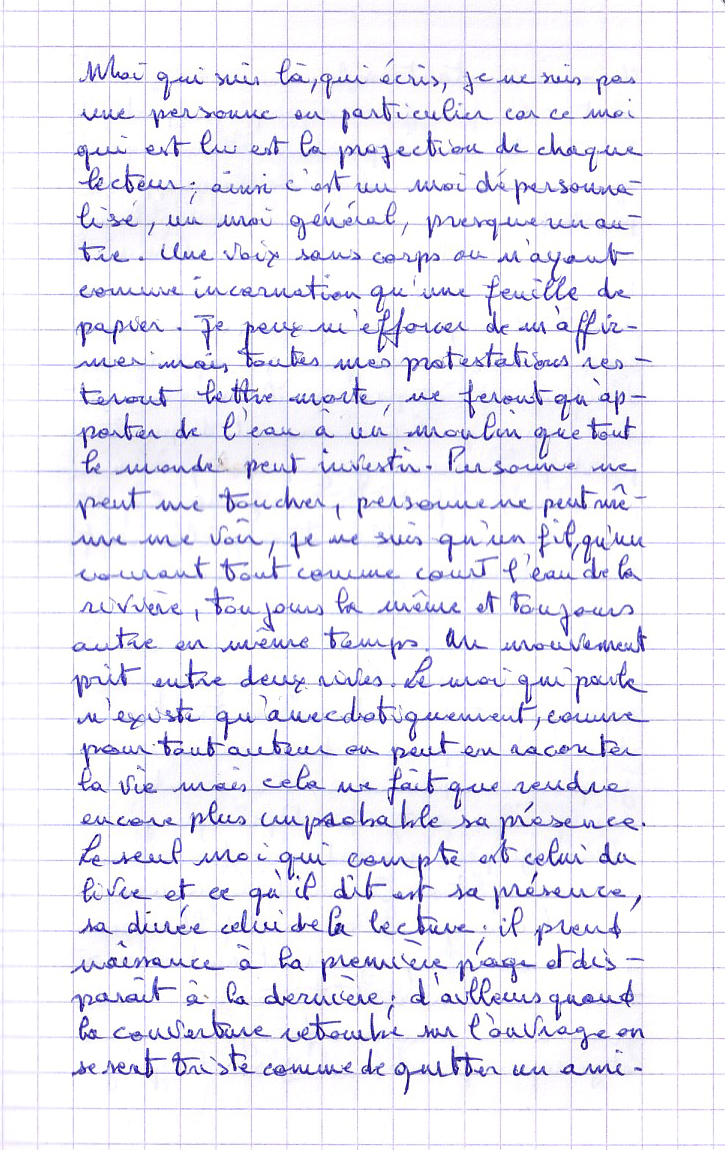 Moi qui suis là, qui écris, je ne suis pas
une personne en particulier car ce moi
qui est lu est la projection de chaque
lecteur ; ainsi c'est un moi dépersonna-
lisé, un moi général, presque un au-
tre. Une voix sans corps ou n'ayant
comme incarnation qu'une feuille de
papier. Je peux m'efforcer de m'affir-
mer mais toutes mes protestations res-
teront lettre morte, ne feront qu'ap-
porter de l'eau à un moulin que tout
le monde peut investir. Personne ne
peut me toucher, personne ne peut mê-
me me voir, je ne suis qu'un fil, qu'un
courant tout comme court l'eau de la
rivière, toujours la même et toujours
autre en même temps. Un mouvement
prit entre deux rives. Le moi qui parle
n'existe qu'anecdotiquement, comme
pour tout auteur on peut en raconter
la vie mais cela ne fait que rendre
encore plus improbable sa présence.
Le seul moi qui compte est celui du
livre et ce qu'il dit est sa présence,
sa durée celui de la lecture ; il prend
naissance à la première page et dis-
paraît à la dernière ; d'ailleurs quand
la couverture retombe sur l'ouvrage on
se sent triste comme de quitter un ami.